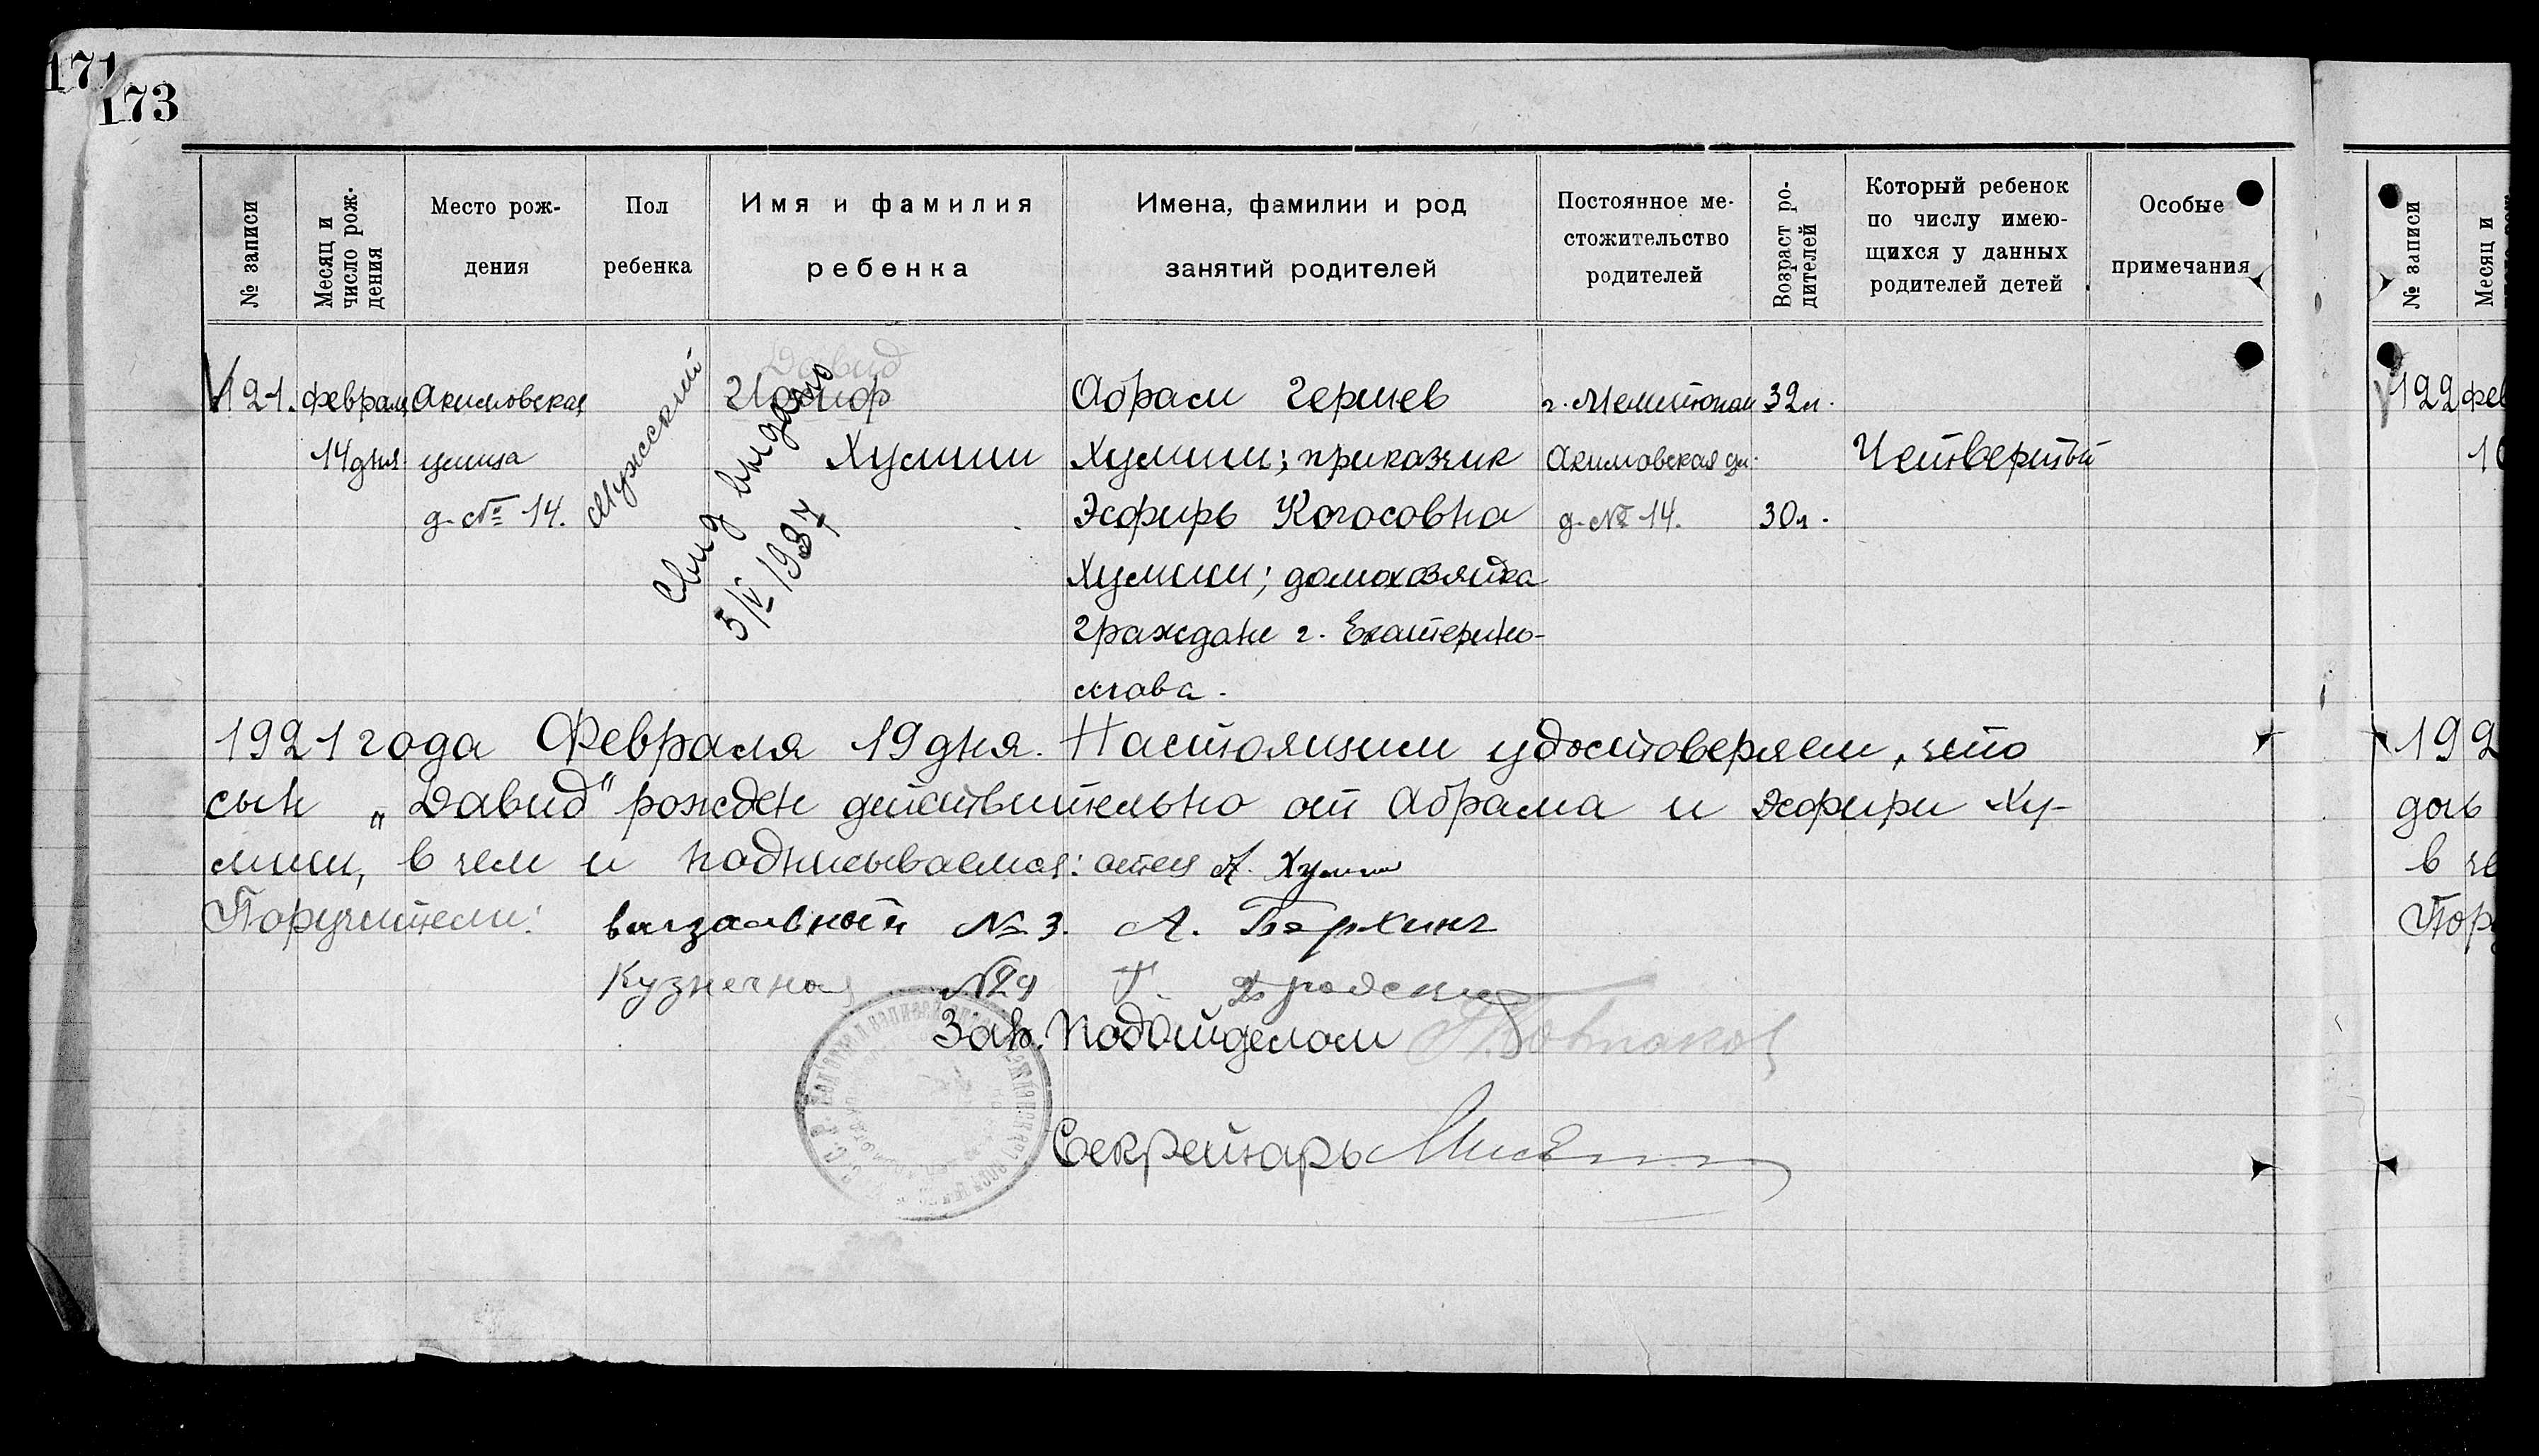 171
173
№ записи
Месяц и число рождения
Место рождения
Пол ребенка
Имя и фамилия ребенка
Имена, фамилии и род занятий родителей
Постоянное местожительство родителей
Возраст родителей
Который ребенок по числу имеющихся у данных родителей детей
Особые примечания
№ записи
Месяц и
Давид
121. февраля Акимовская Абрам Гершев г. Мелитополь 32 л. 122 фев
14 дня улица Мужской Хулиш Хулиш; приказчик Акимовская ул. Четвертый
д. № 14. Эсфирь д. № 14. 30 л.
Свид выдано
5/V 1937
Хулиш; домохозяйка
граждане г. Екатерино-
слава.
1921 года Февраля 19 дня. Настоящим удостоверяем, что
сын „Давид" рожден действительно от Абрама и Эсфири Ху-
лиш, в чем и подписываемся: отец А. Хулиш
Поручители: вагзальный № 3. А.
Кузнечная Г. Бродский
Зав. Подотделом
Секретарь
192
дочь
в че
Пор